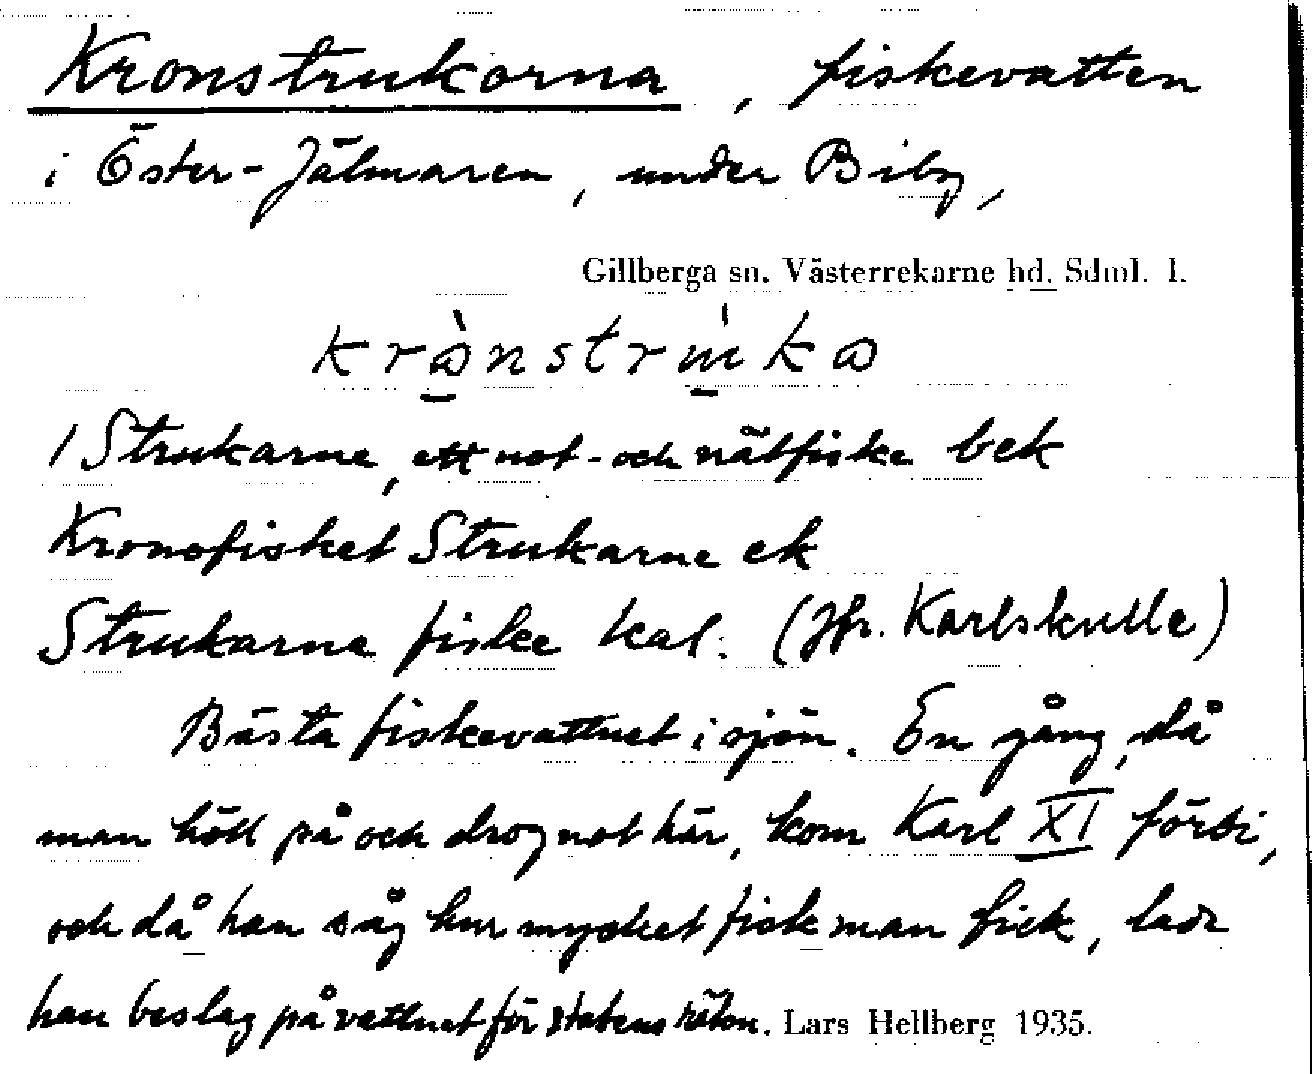 Kronstrukorna, fiskevatten
i Öster-Jälmaren, under Biby,
Gillberga sn. Västerrekarne hd. Sdml. l.
1 Strukarne, ett not- och nätfiske bek
Kronofisket Strukarne ek
Strukarne fiske kal. (Jfr. Karlskulle)
Bästa fiskevattnet i sjön. En gång, då
man höll på och drog not här, kom Karl XI förbi,
och då han såg hur mycket fisk man fick, lade
han beslag på vattnet för statens räkn. Lars Hellberg 1935.